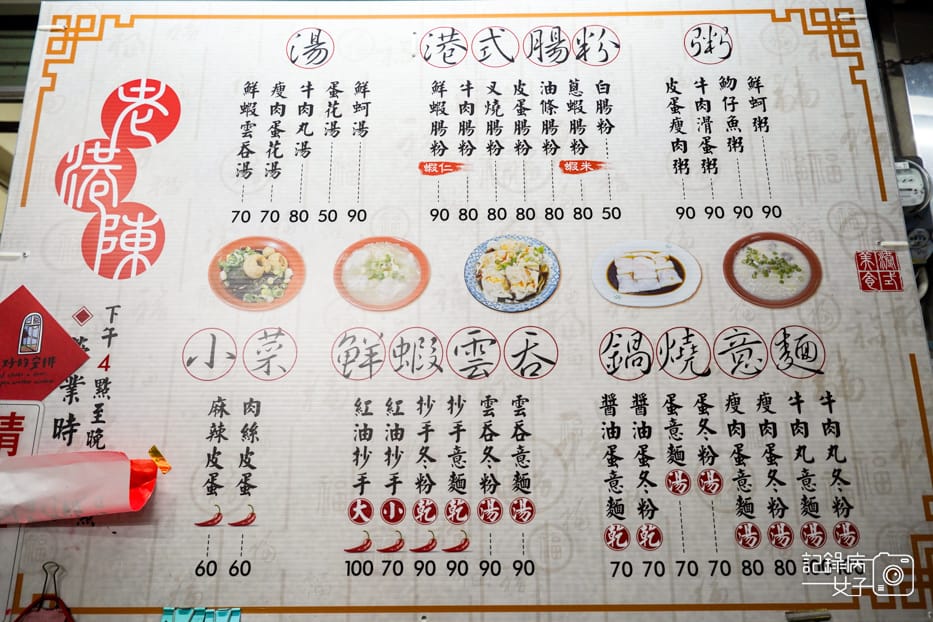 老港陳
湯
鮮蝦雲吞湯 70
瘦肉蛋花湯 70
牛肉丸湯 80
蛋花湯 50
鮮蚵湯 90
港式腸粉
鮮蝦腸粉 蝦仁 90
牛肉腸粉 80
叉燒腸粉 80
皮蛋腸粉 80
油條腸粉 80
蔥蝦腸粉 蝦米 80
白腸粉 50
粥
皮蛋瘦肉粥 90
牛肉滑蛋粥 90
魩仔魚粥 90
鮮蚵粥 90
港式美食
小菜
麻辣皮蛋 60
肉絲皮蛋 60
鮮蝦雲吞
紅油抄手 大 100
紅油抄手 小 70
抄手冬粉 乾 90
抄手意麵 乾 90
雲吞冬粉 湯 90
雲吞意麵 湯 90
鍋燒意麵
醬油蛋意麵 乾 70
醬油蛋冬粉 乾 70
蛋意麵 湯 70
蛋冬粉 湯 70
瘦肉蛋意麵 湯 80
瘦肉蛋冬粉 湯 80
牛肉丸意麵 湯
牛肉丸冬粉 湯
業時
下午4點至晚
好的安排
請
記錄病
女子